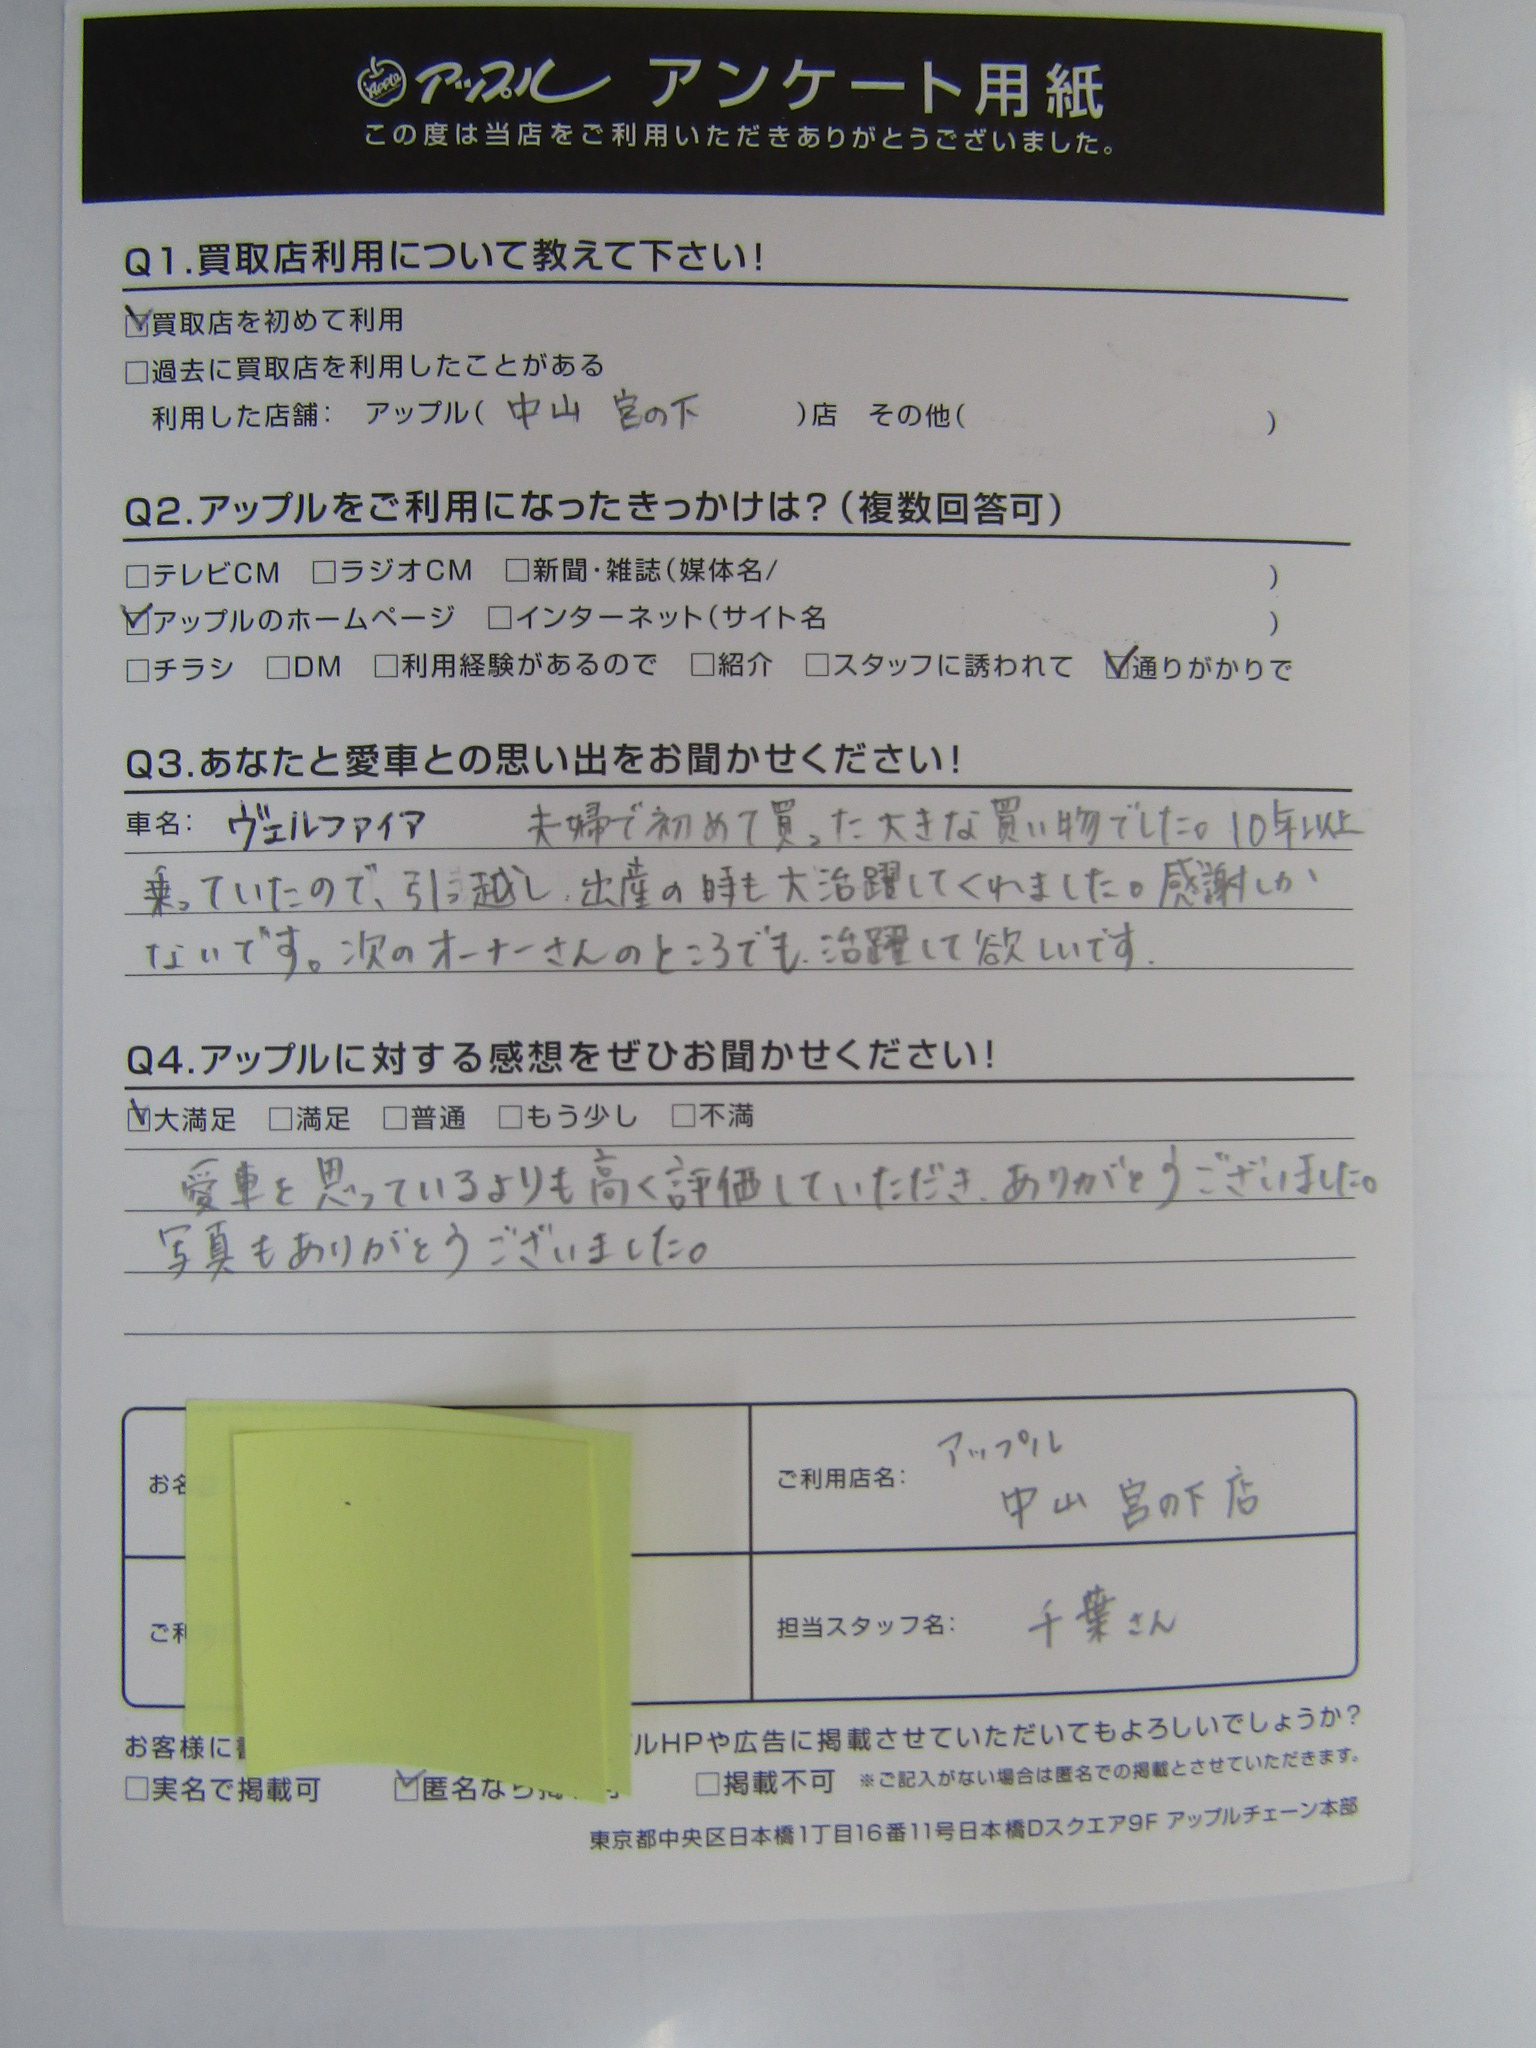 Apple アップル アンケート用紙
この度は当店をご利用いただきありがとうございました。
Q1.買取店利用について教えて下さい!
☑買取店を初めて利用
□過去に買取店を利用したことがある
利用した店舗: アップル( 中山 宮の下 )店 その他( )
Q2.アップルをご利用になったきっかけは?(複数回答可)
□テレビCM □ラジオCM □新聞・雑誌(媒体名/ )
☑アップルのホームページ □インターネット(サイト名 )
□チラシ □DM □利用経験があるので □紹介 □スタッフに誘われて ☑通りがかりで
Q3.あなたと愛車との思い出をお聞かせください!
車名: ヴェルファイア 夫婦で初めて買った大きな買い物でした。10年以上
乗っていたので、引っ越し、出産の時も大活躍してくれました。感謝しか
ないです。次のオーナーさんのところでも、活躍して欲しいです.
Q4.アップルに対する感想をぜひお聞かせください!
☑大満足 □満足 □普通 □もう少し □不満
愛車を思っているよりも高く評価していただき、ありがとうございました。
写真もありがとうございました。
お名
ご利用店名: アップル
中山 宮の下店
ご利
担当スタッフ名: 千葉さん
お客様に書 プルHPや広告に掲載させていただいてもよろしいでしょうか?
□実名で掲載可 ☑匿名なら掲載可 □掲載不可 ※ご記入がない場合は匿名での掲載とさせていただきます。
東京都中央区日本橋1丁目16番11号日本橋Dスクエア9F アップルチェーン本部